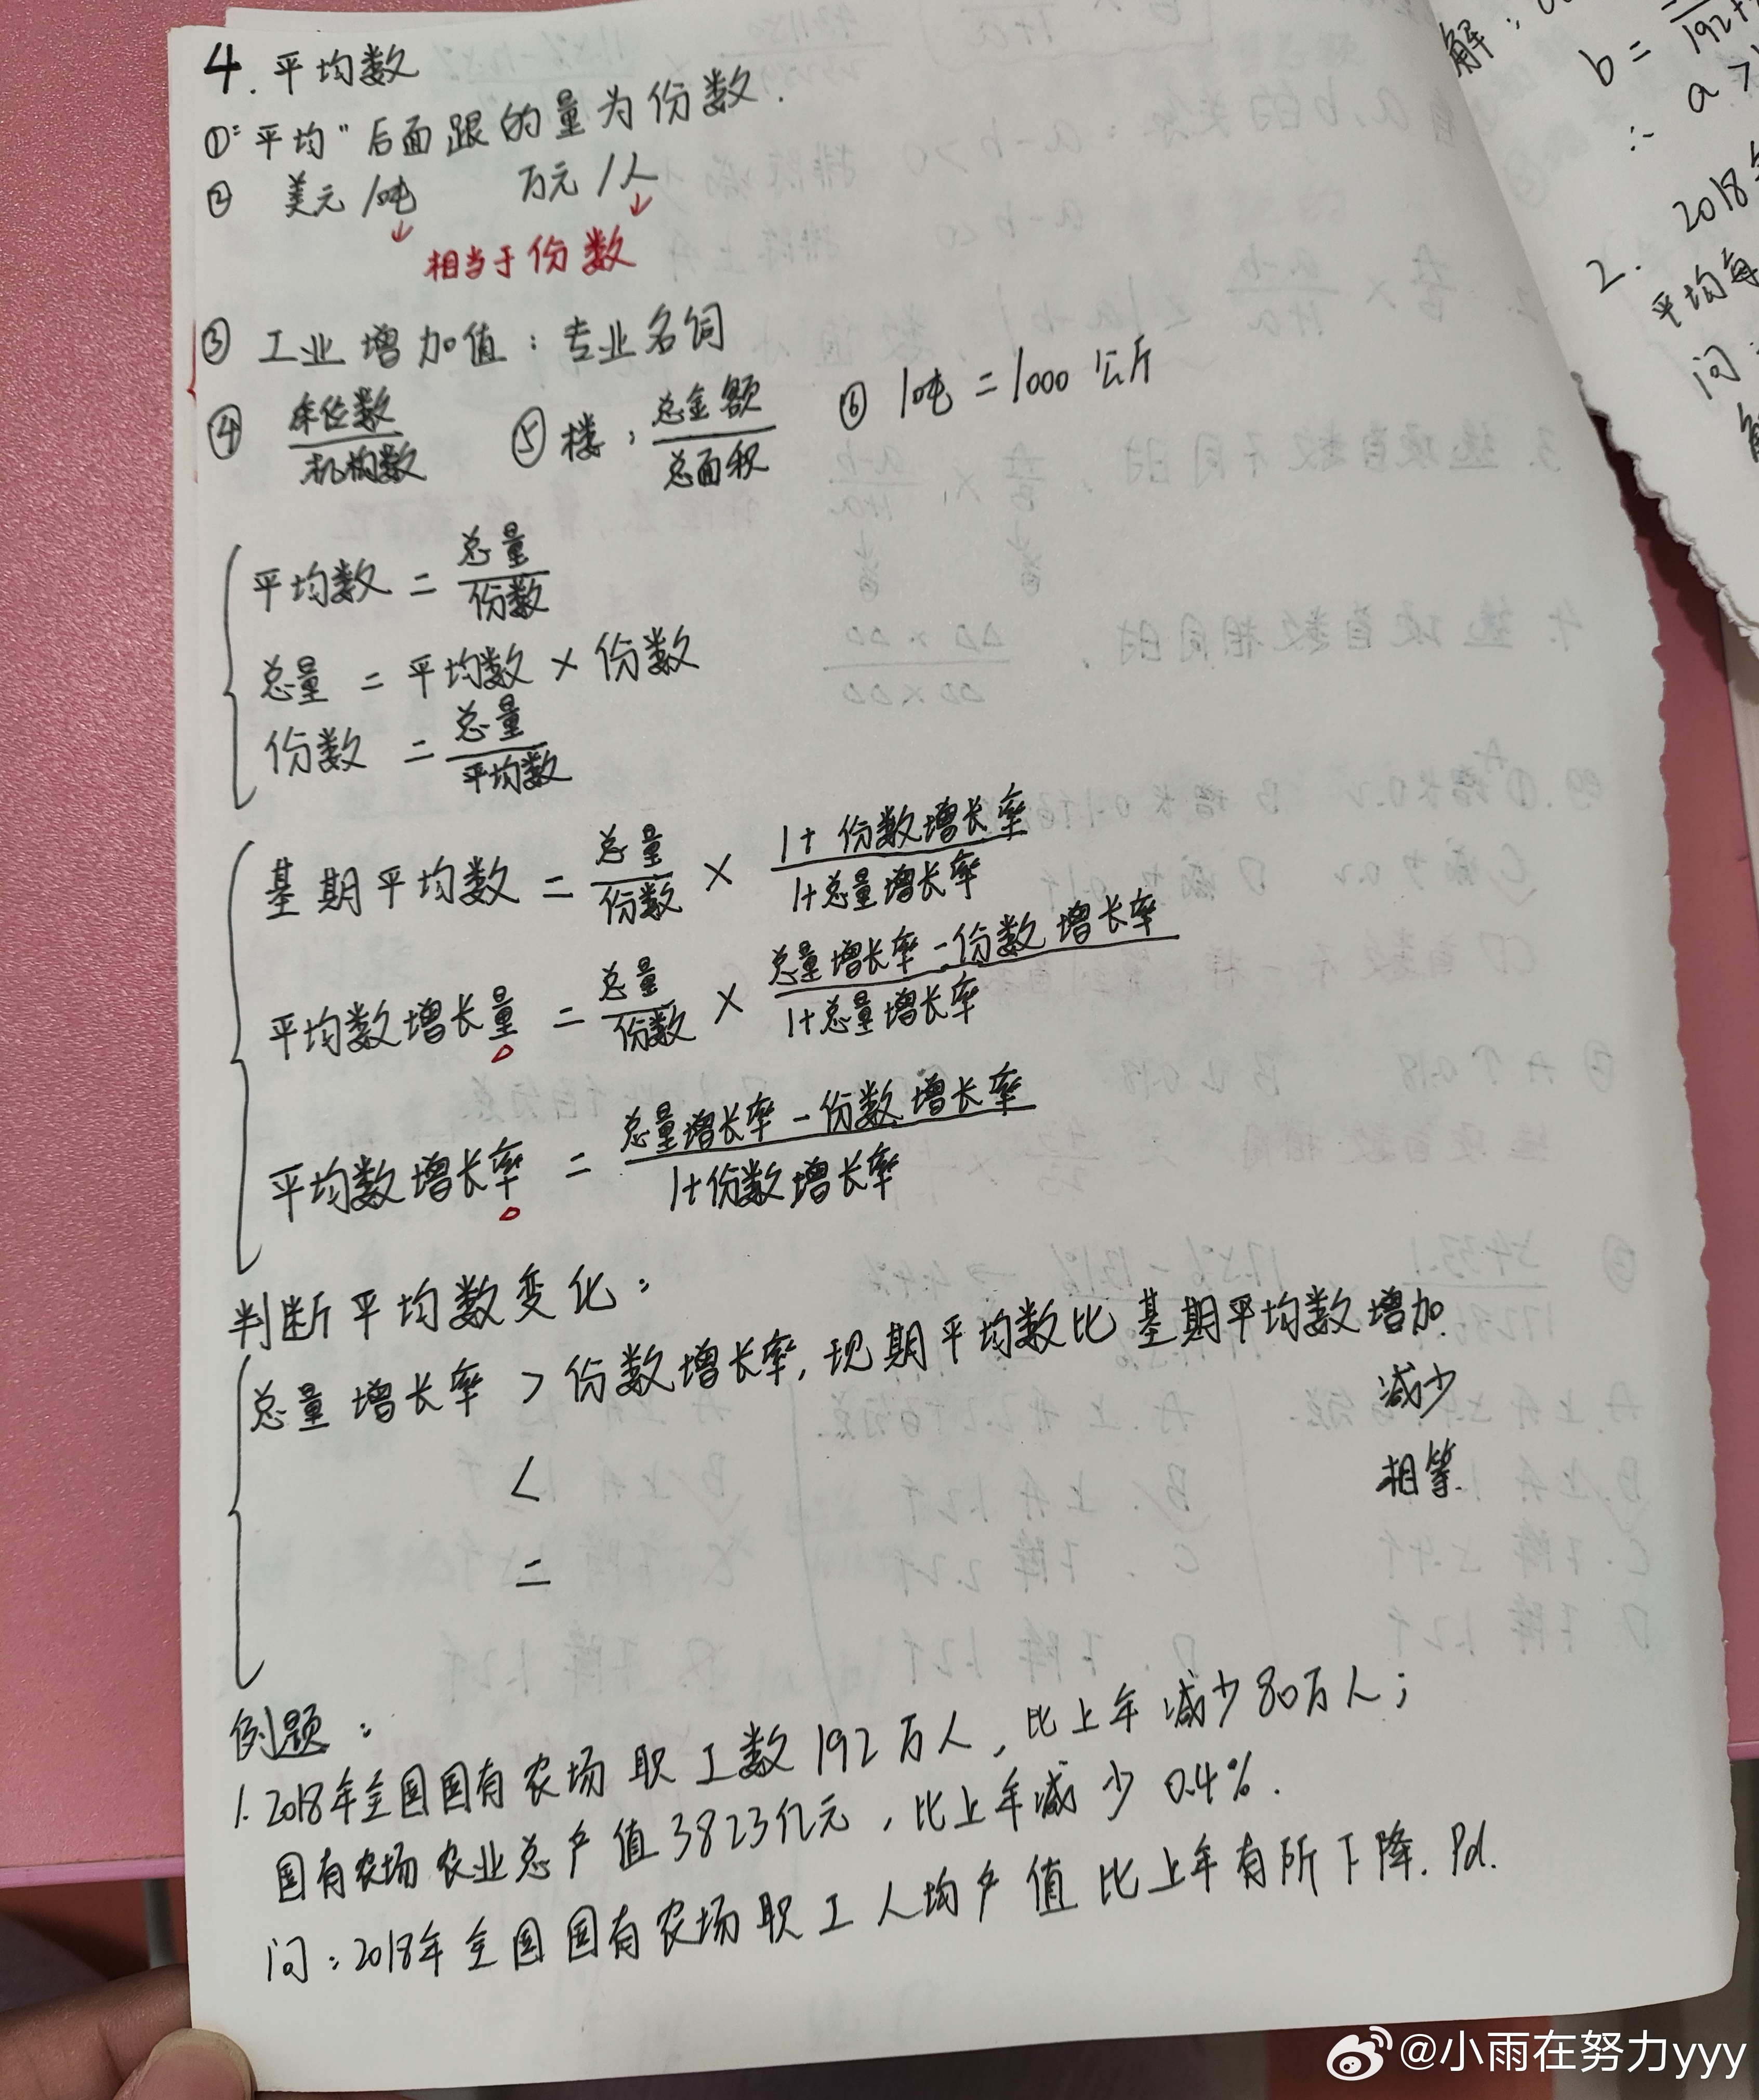 4. 平均数
①"平均"后面跟的量为份数.
② 美元/吨 万元/人
相当于份数
③ 工业增加值：专业名词
④ 床位数/机构数 ⑤ 楼：总金额/总面积 ⑥ 1吨=1000公斤
平均数 = 总量/份数
总量 = 平均数 × 份数
份数 = 总量/平均数
基期平均数 = 总量/份数 × 1+份数增长率/1+总量增长率
平均数增长量 = 总量/份数 × 总量增长率-份数增长率/1+总量增长率
平均数增长率 = 总量增长率-份数增长率/1+份数增长率
判断平均数变化：
总量增长率 > 份数增长率, 现期平均数比基期平均数增加.
减少
< 相等.
=
例题：
1. 2018年全国国有农场职工数192万人, 比上年减少80万人；
国有农场农业总产值3823亿元, 比上年减少0.4%.
问：2018年全国国有农场职工人均产值比上年有所下降. Pd.
解：
b = 192+
∴ a >
2. 2018
平均每
问：
@小雨在努力yyy